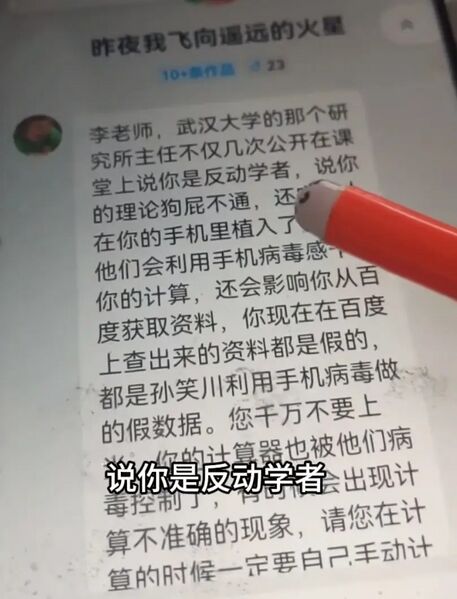 昨夜我飞向遥远的火星
10+条作品 23
李老师，武汉大学的那个研
究所主任不仅几次公开在课
堂上说你是反动学者，说你
的理论狗屁不通，还
在你的手机里植入了
他们会利用手机病毒感
你的计算，还会影响你从百
度获取资料，你现在在百度
上查出来的资料都是假的，
都是孙笑川利用手机病毒做
的假数据。您千万不要上
你的计算器也被他们病
说你是反动学者
毒控制了，会出现计
算不准确的现象，请您在计
算的时候一定要自己手动计